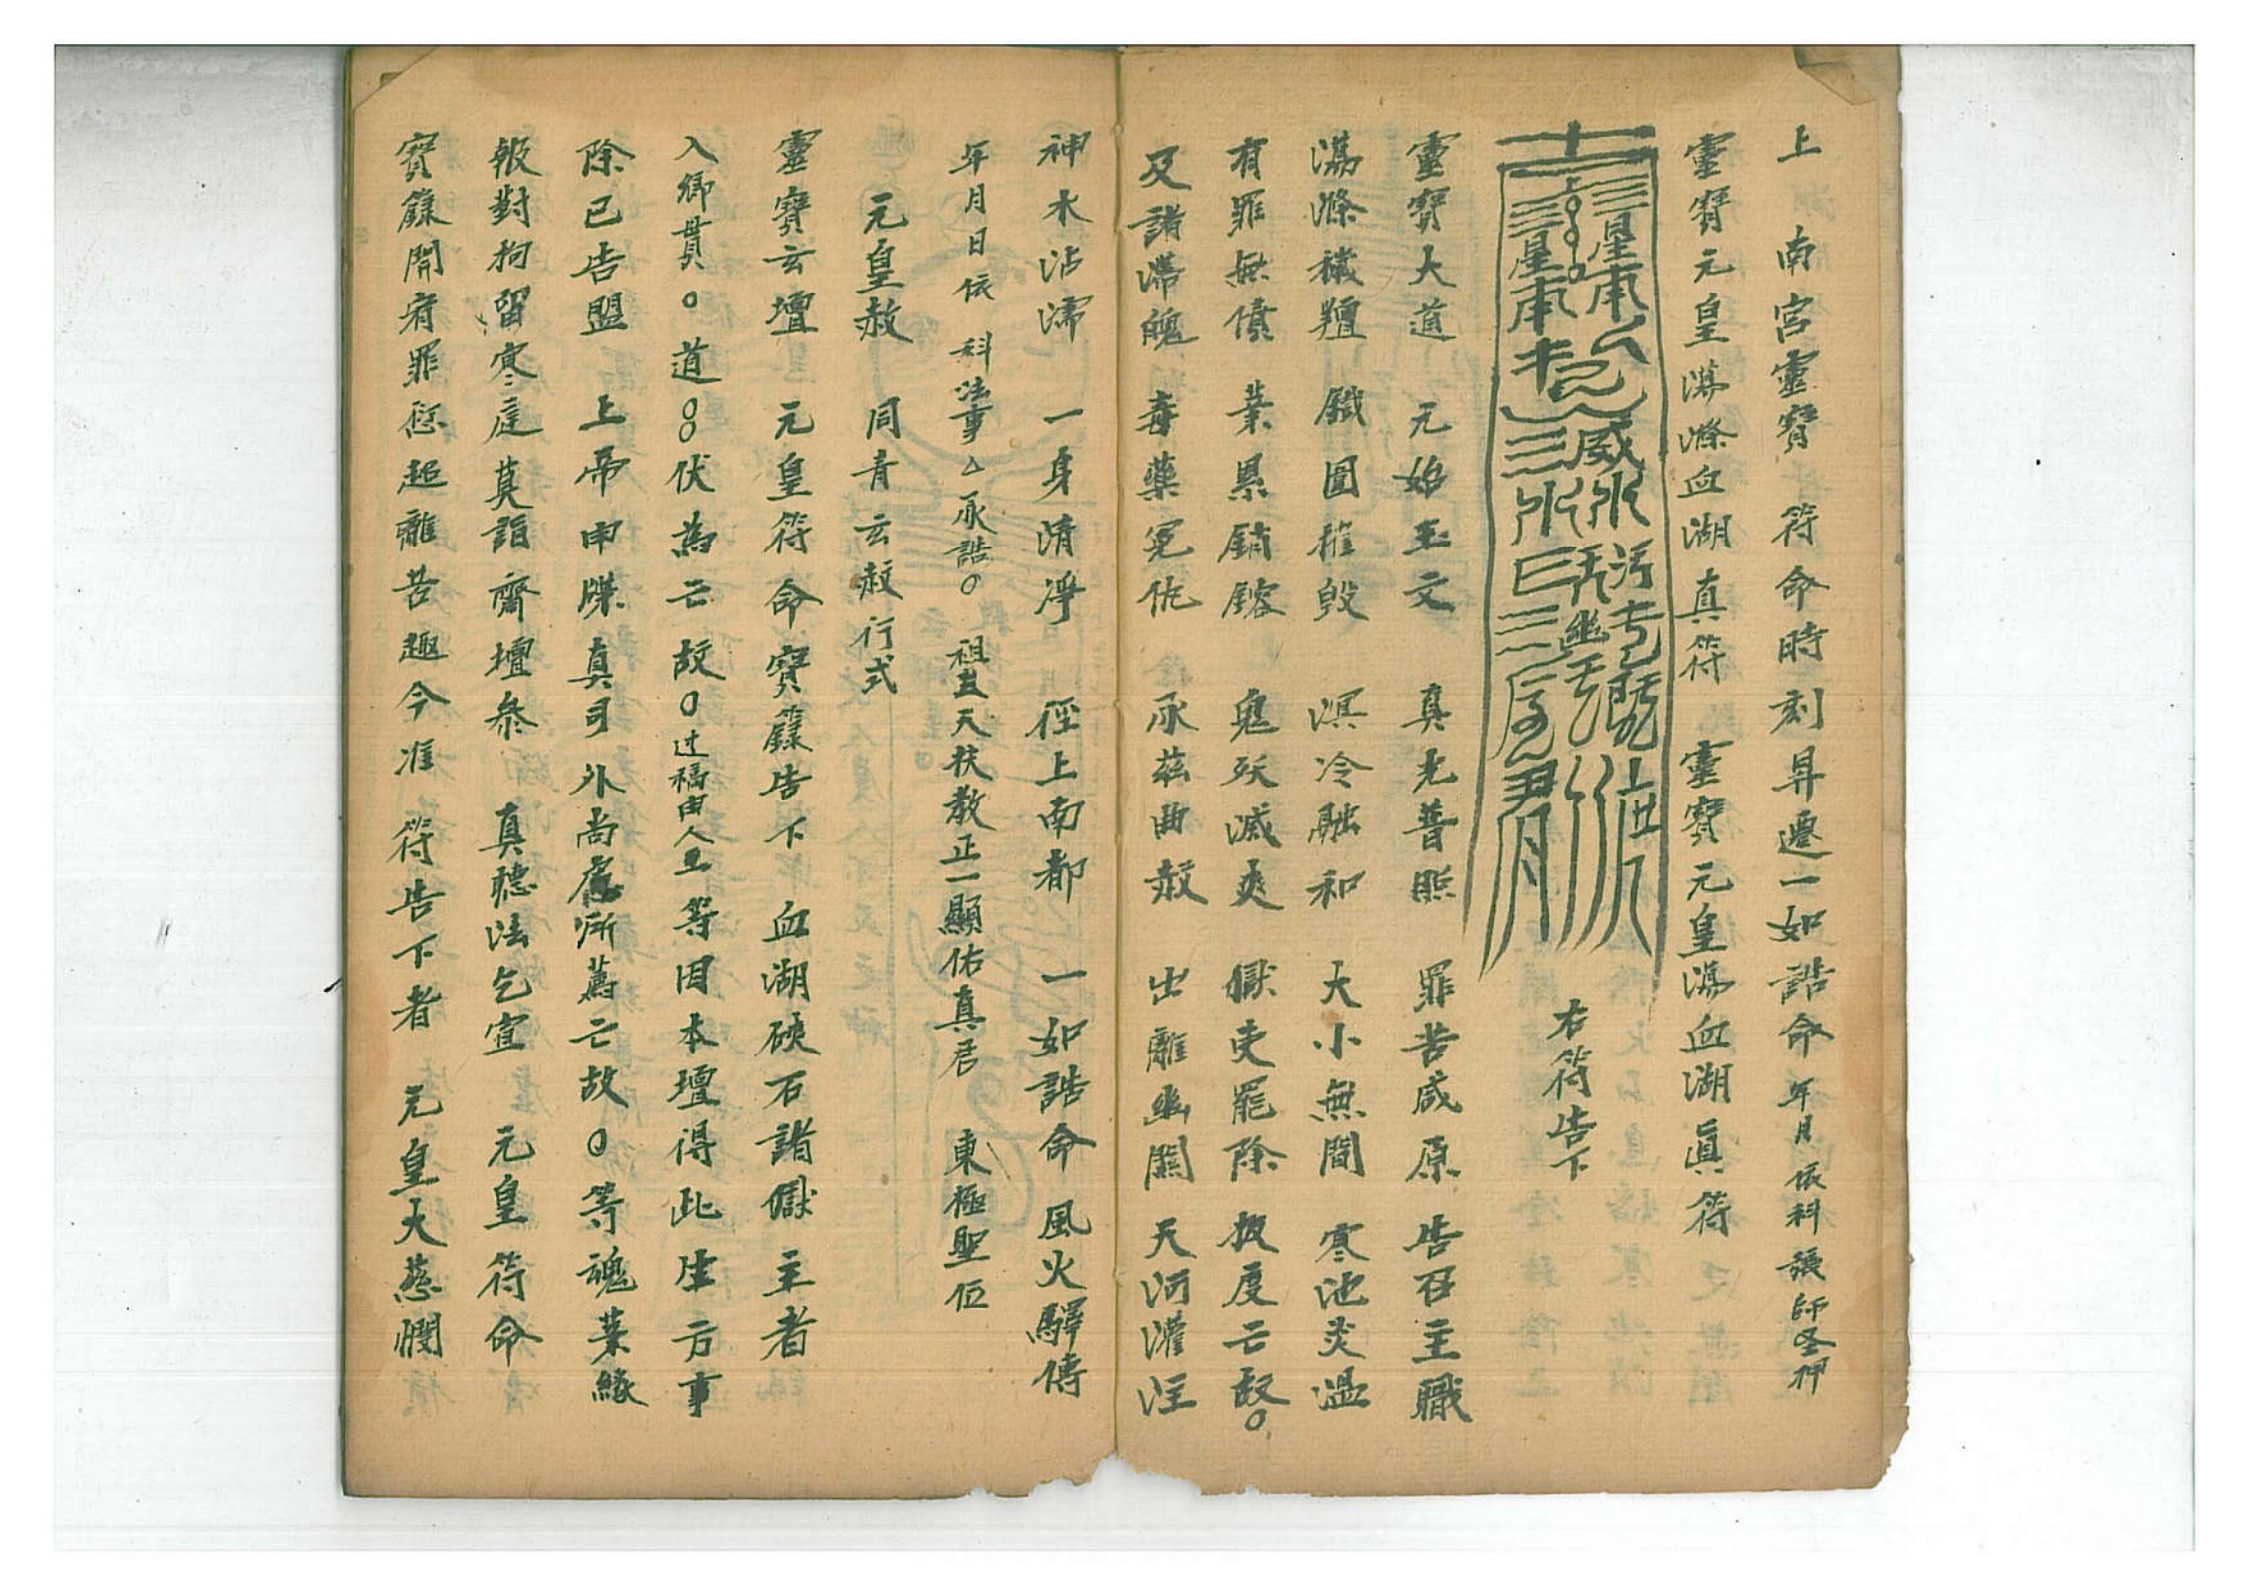 上 南宮靈寶 符命時刻昇遷一如誥命 年月依科張師圣押
靈寶元皇蕩滌血湖真符 靈寶元皇蕩血湖眞符
右符告下
靈寶大道 元始玉文 真光普照 罪苦咸原 告召主職
蕩滌穢羶 鐵圍摧毀 溟冷融和 大小無間 寒池炎溫
有罪無債 業累銷鎔 鬼妖滅爽 獄吏罷除 拔度亡故〇
及諸滯魄 毒藥冤仇 承茲曲赦 出離幽關 天河灌注
神水沾濡 一身清淨 徑上南都 一如誥命 風火驛傳
年月日依 科法事△承誥〇 祖 天扶教正一顯佑真君 東極聖位
元皇赦 同青云赦行式
靈寶云壇 元皇符命寶籙告下血湖硤石諸獄主者
入鄉貫〇道〇〇伏為亡故〇过稿由人 等因本壇得此生方事
除已告盟 上帝申牒真司外尚慮所薦亡故〇等魂業緣
報對拘留寒庭莫詣齋壇叅 真聽法乞宣 元皇符命
寶籙開宥罪愆超離苦趣今准 符告下者 元皇大慈憫